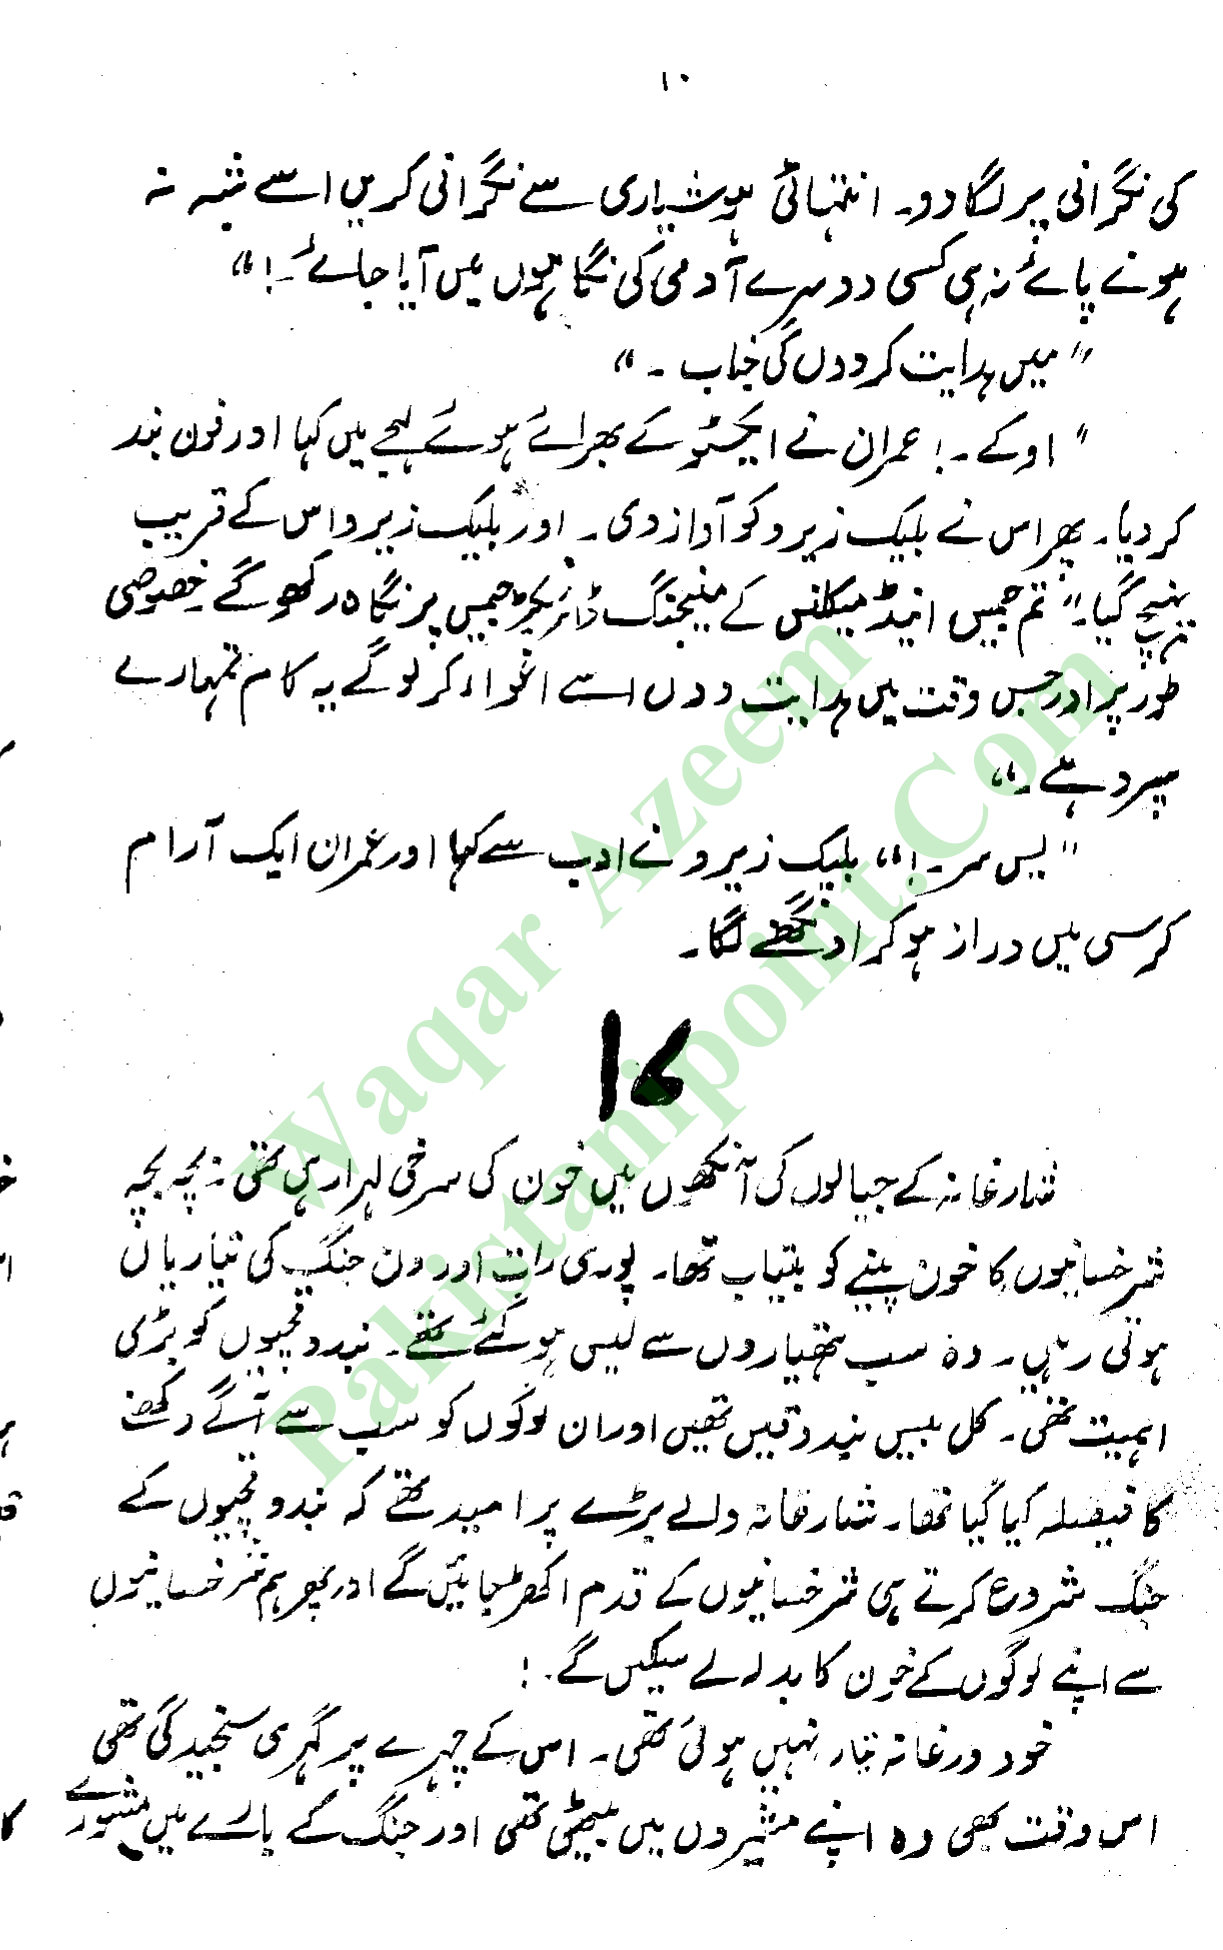 ۱۰
کی نگرانی پر لگا دو۔ انتہائی ہوشیاری سے نگرانی کریں اسے شبہ نہ
ہونے پائے نہ ہی کسی دوسرے آدمی کی نگاہوں میں آیا جائے۔!"
"میں ہدایت کر دوں گی جناب۔"
"اوکے۔! عمران نے ایکسٹو کے بھرائے ہوئے لہجے میں کہا اور فون بند
کر دیا۔ پھر اس نے بلیک زیرو کو آواز دی۔ اور بلیک زیرو اس کے قریب
پہنچ گیا۔" تم جمیس اینڈ میکلنس کے منیجنگ ڈائریکٹر جمیس پر نگاہ رکھو گے۔ خصوصی
طور پر اور جس وقت میں ہدایت دوں اسے اغواء کر لو گے یہ کام تمہارے
سپرد ہے۔"
"یس سر۔!" بلیک زیرو نے ادب سے کہا اور عمران ایک آرام
کرسی میں دراز ہو کر اونگھنے لگا۔
شارغانہ کے جیالوں کی آنکھوں میں خون کی سرخی لہرا رہی تھی۔ بچہ بچہ
شرخسانیوں کا خون پینے کو بیتاب تھا۔ پوری رات اور دن جنگ کی تیاریاں
ہوتی رہیں۔ وہ سب ہتھیاروں سے لیس ہو گئے تھے۔ بندوقچیوں کو بڑی
اہمیت تھی۔ کل بیس بندوقیں تھیں اور ان لوگوں کو سب سے آگے رکھنے
کا فیصلہ کیا گیا تھا۔ شارغانہ والے بڑے پر امید تھے کہ بندوقچیوں کے
جنگ شروع کرتے ہی شرخسانیوں کے قدم اکھڑ جائیں گے اور پھر ہم شرخسانیوں
سے اپنے لوگوں کے خون کا بدلہ لے سکیں گے۔!
خود ورغانہ تیار نہیں ہوئی تھی۔ اس کے چہرے پر گہری سنجیدگی تھی
اس وقت بھی وہ اپنے مشیروں میں بیٹھی تھی اور جنگ کے بارے میں مشورے
Waqar Azeem
Pakistanipoint.Com